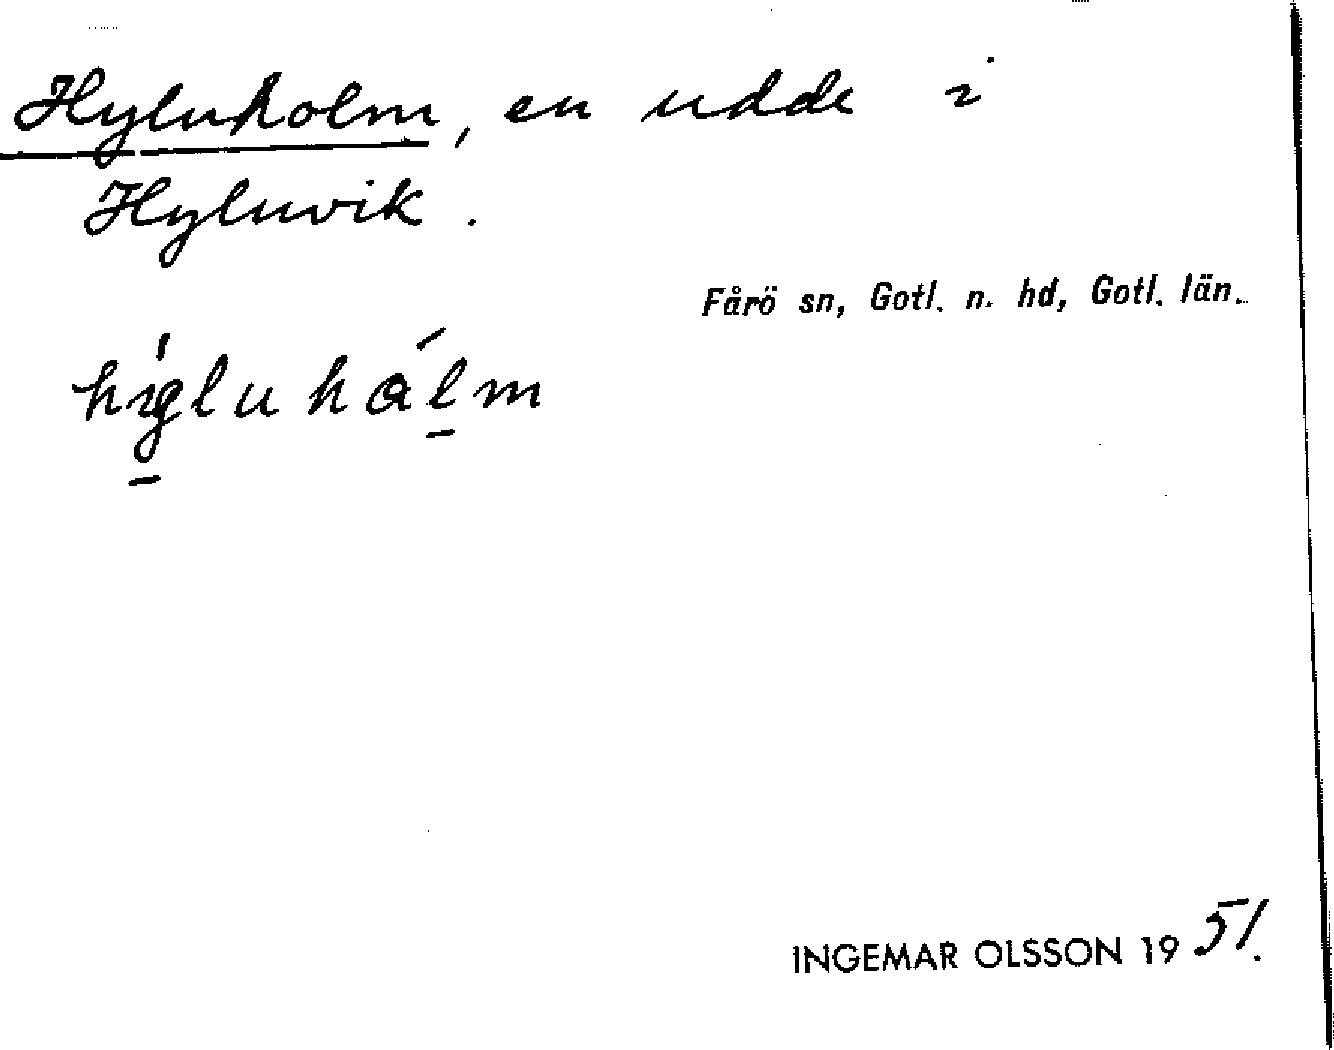 Hyluholm, en udde i
Hyluvik.
Fårö sn, Gotl. n. hd, Gotl. län.
INGEMAR OLSSON 1951.